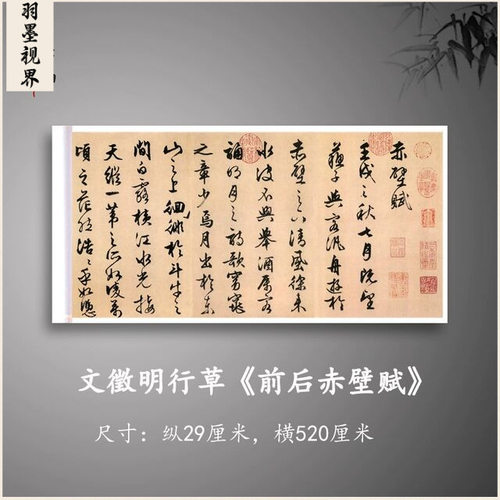 羽墨视界
赤壁賦
壬戌之秋七月既望
蘇子與客汎舟遊於
赤壁之下清風徐来
水波不興舉酒屬客
誦明月之詩歌窈窕
之章少焉月出於東
山之上徘徊於斗牛之
間白露横江水光接
天縱一葦之所如凌萬
頃之茫然浩浩乎如憑
文徵明行草《前后赤壁赋》
尺寸：纵29厘米，横520厘米